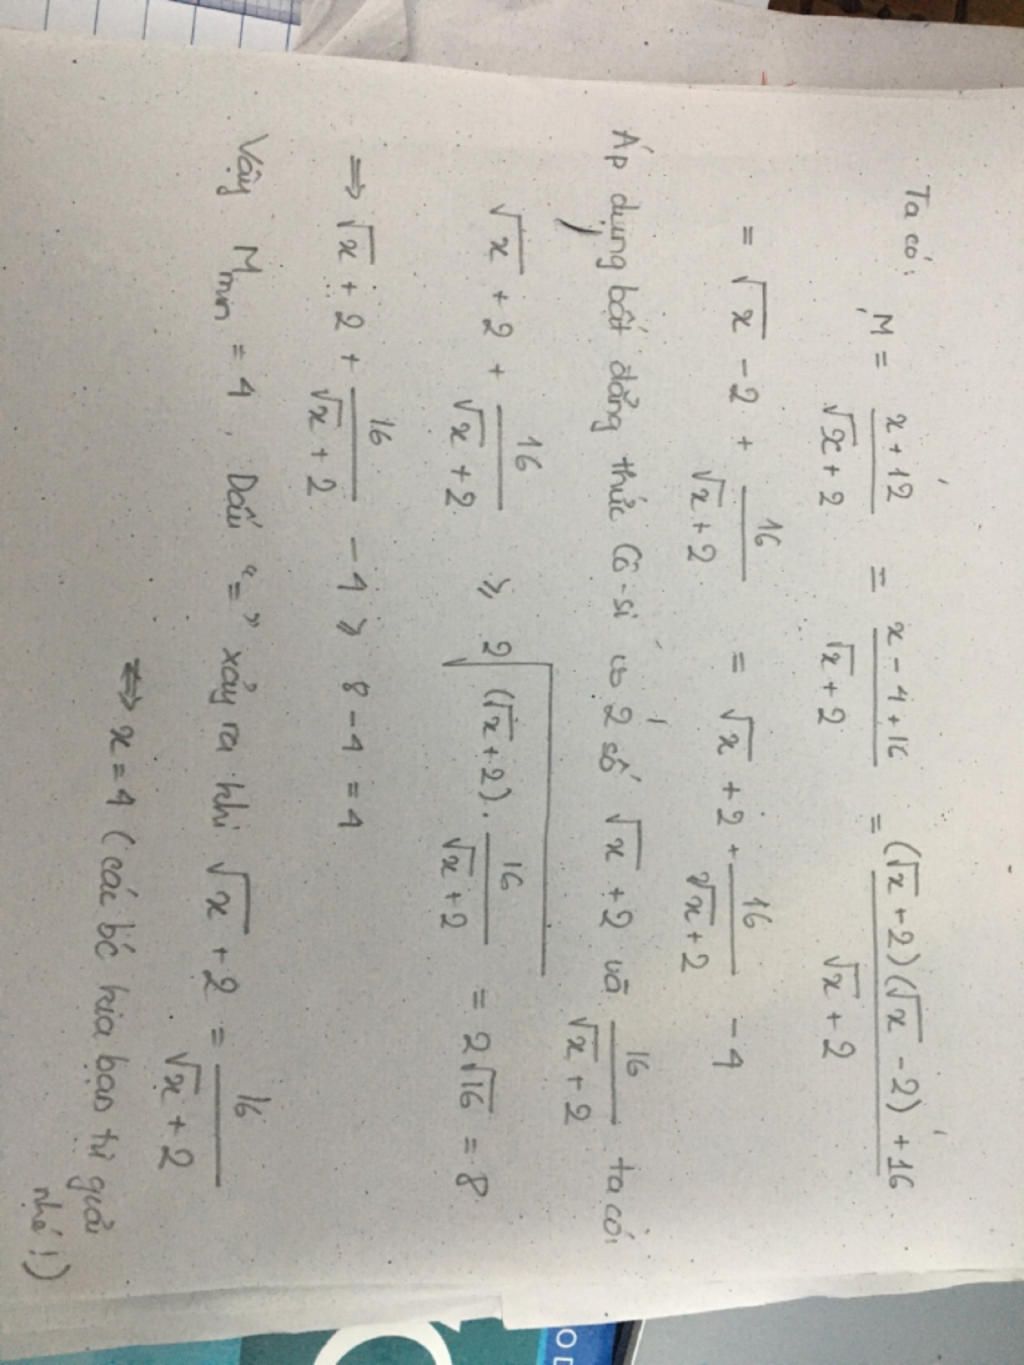 Ta có: M = (x + 12)/(√x + 2) = (x - 4 + 16)/(√x + 2) = ((√x + 2)(√x - 2) + 16)/(√x + 2)
= √x - 2 + 16/(√x + 2) = √x + 2 + 16/(√x + 2) - 4
Áp dụng bất đẳng thức Cô-si cs 2 số √x + 2 và 16/(√x + 2) ta có:
√x + 2 + 16/(√x + 2) ≥ 2√((√x + 2) . 16/(√x + 2)) = 2√16 = 8
=> √x + 2 + 16/(√x + 2) - 4 ≥ 8 - 4 = 4
Vậy Mmin = 4 . Dấu "=" xảy ra khi √x + 2 = 16/(√x + 2)
<=> x = 4 (các bc kia bạn tự giải
nhé!)